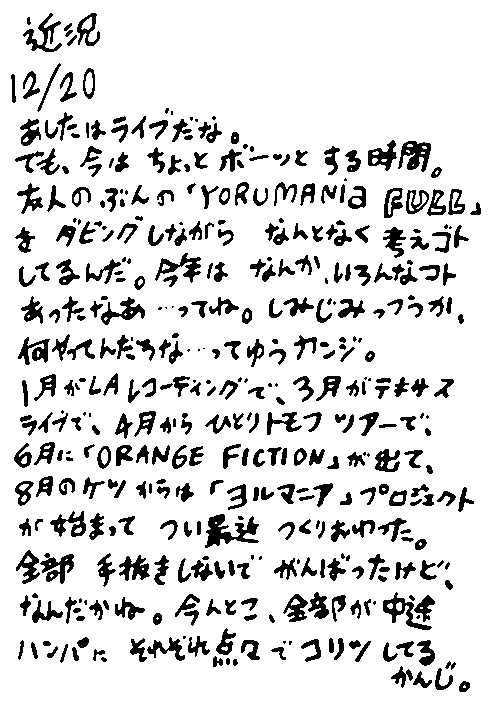 近況
12/20
あしたはライブだな。
でも、今は ちょっと ボーッと する時間。
友人の ぶんの「YORUMANiA FULL」
を ダビングしながら なんとなく 考えゴト
してるんだ。今年は なんか、いろんなコト
あったなあ…ってね。しみじみっつうか、
何やってんだろな…ってゆうカンジ。
1月がLAレコーディングで、3月がテキサス
ライブで、4月から ひとりトモフ ツアーで、
6月に「ORANGE FICTION」が出て、
8月のケツからは「ヨルマニア」プロジェクト
が始まって つい最近 つくりおわった。
全部 手抜きしないで がんばったけど、
なんだかね。今んとこ、全部が中途
ハンパに それぞれ点々で コリツしてる
かんじ。